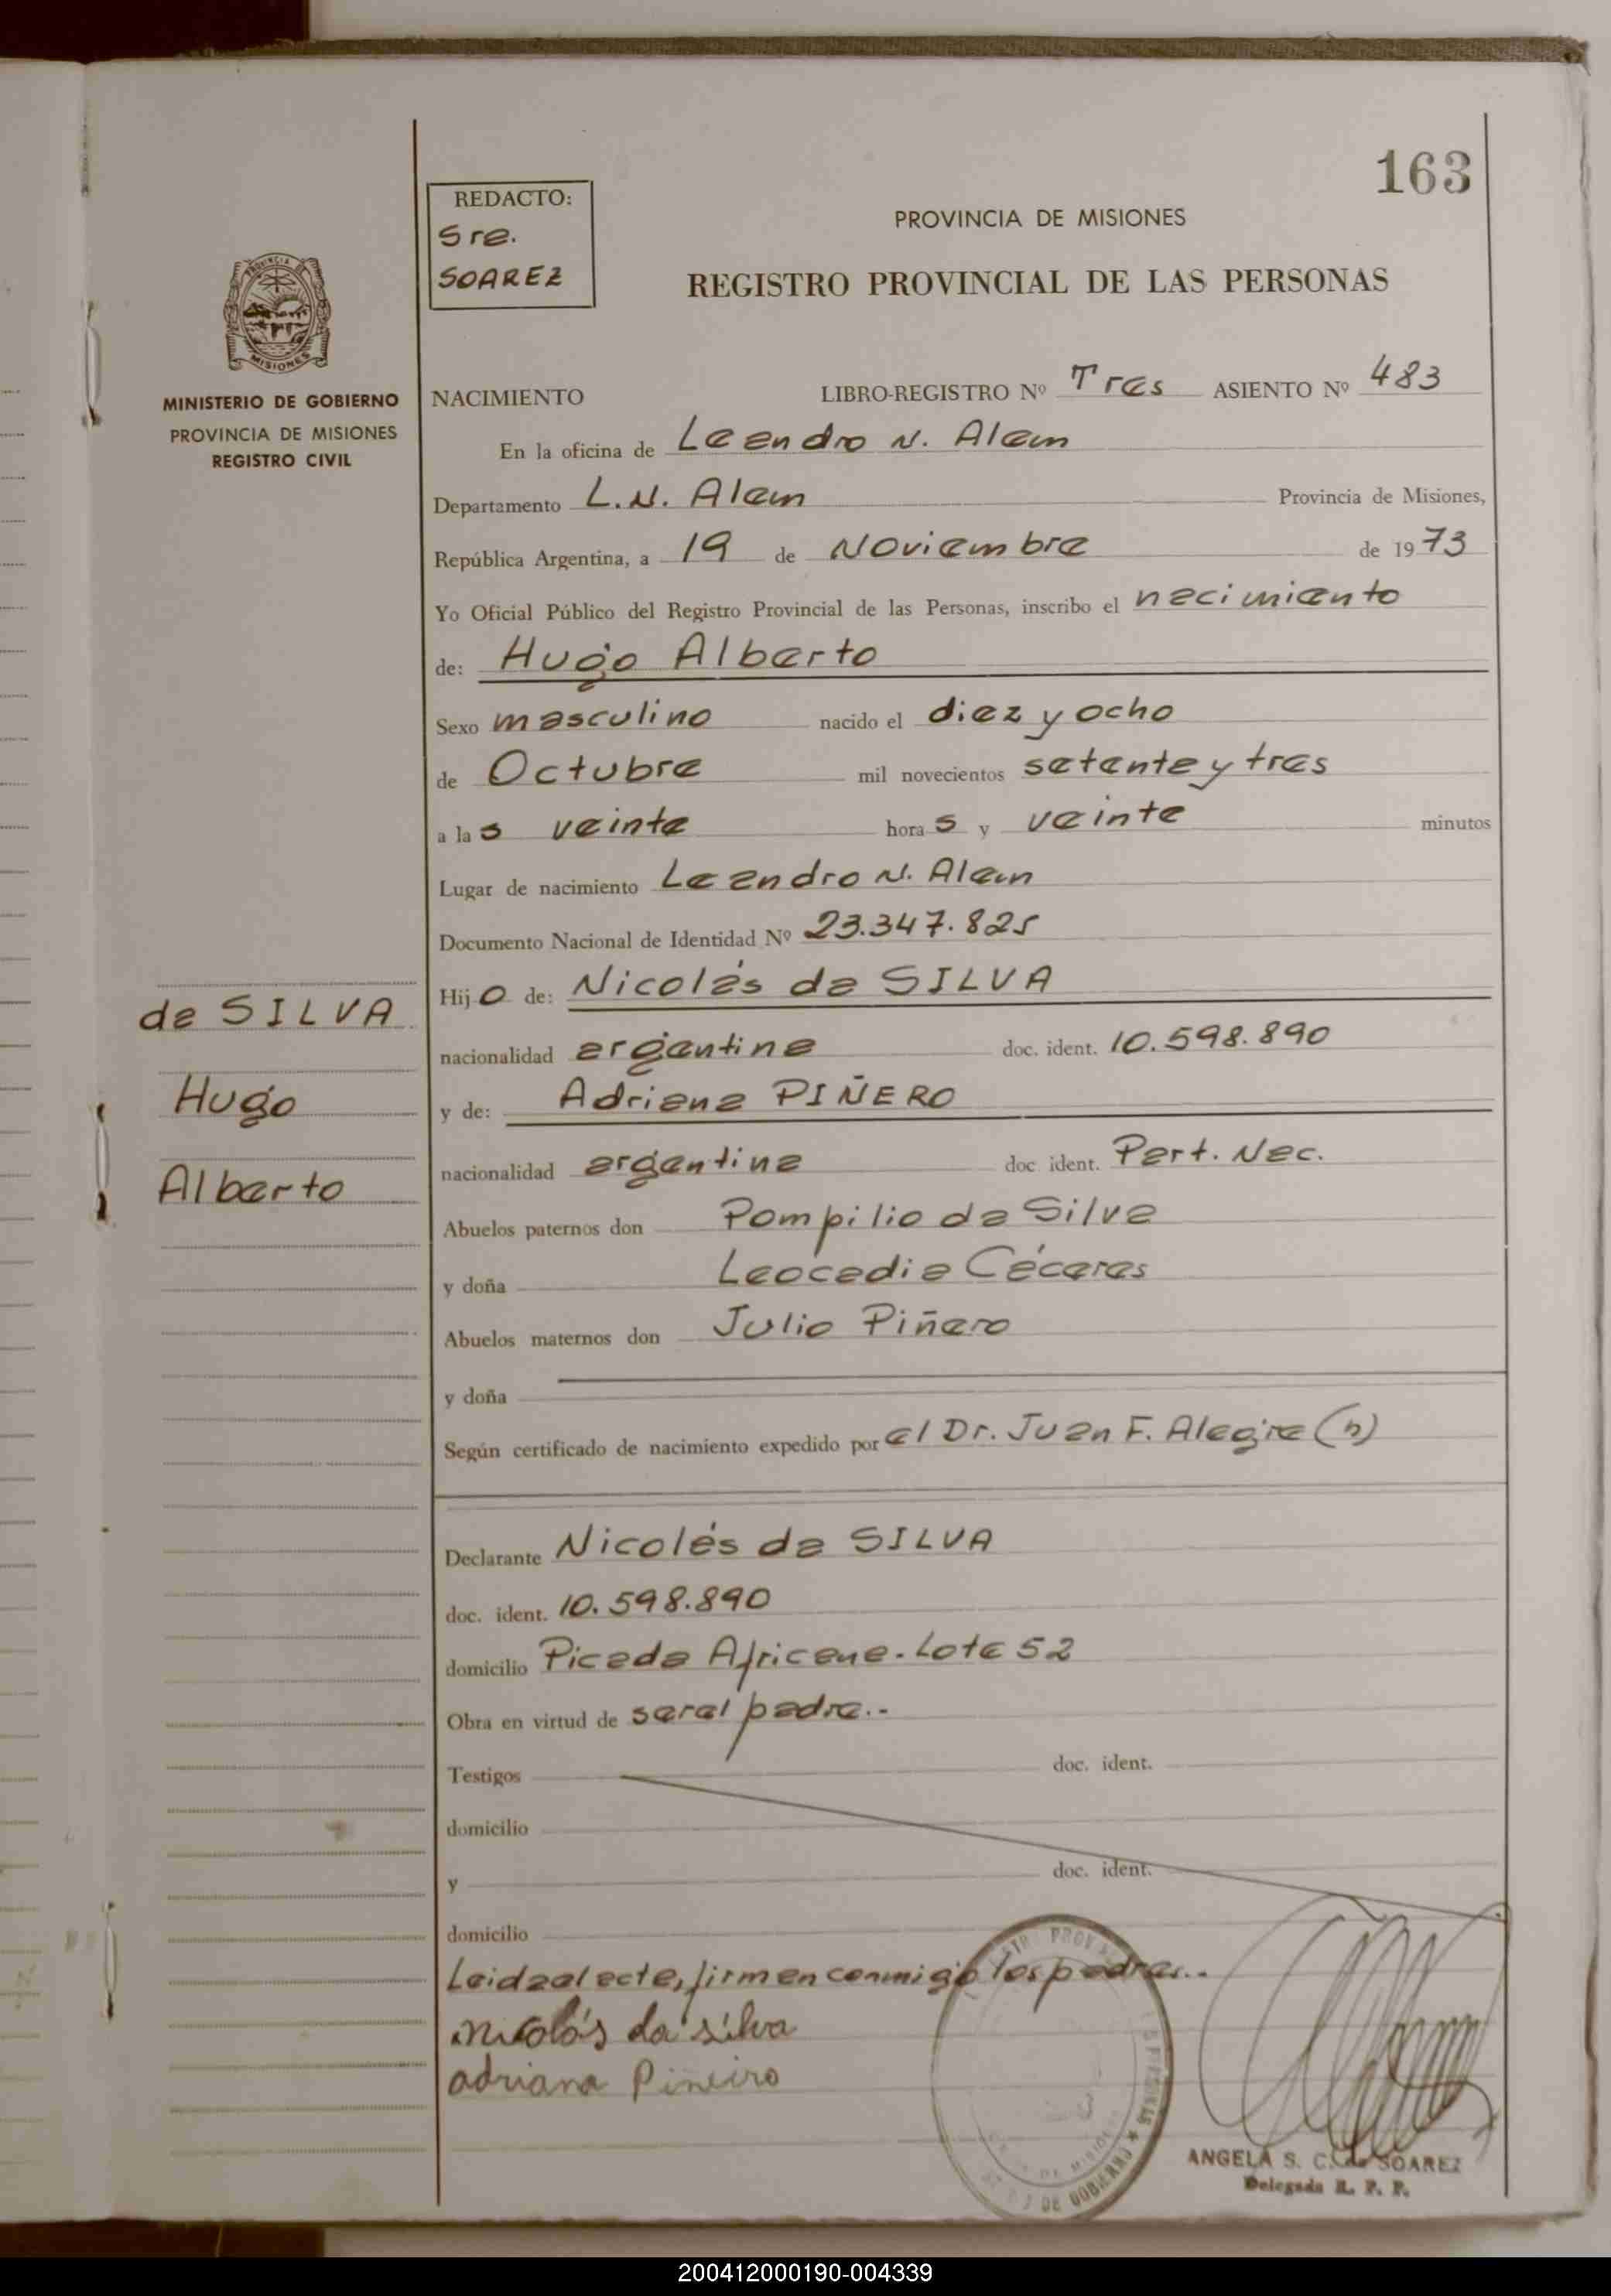 163
REDACTO:
Sra.
SOAREZ
PROVINCIA DE MISIONES
REGISTRO PROVINCIAL DE LAS PERSONAS
PROVINCIA DE
MISIONES
MINISTERIO DE GOBIERNO
PROVINCIA DE MISIONES
REGISTRO CIVIL
NACIMIENTO LIBRO-REGISTRO Nº Tres ASIENTO Nº 483
En la oficina de Leandro N. Alem
Departamento L.N. Alem Provincia de Misiones,
República Argentina, a 19 de Noviembre de 1973
Yo Oficial Público del Registro Provincial de las Personas, inscribo el nacimiento
de: Hugo Alberto
Sexo masculino nacido el diez y ocho
de Octubre mil novecientos setenta y tres
a las veinte horas y veinte minutos
Lugar de nacimiento Leandro N. Alem
Documento Nacional de Identidad Nº 23.347.825
Hijo de: Nicolás da SILVA
da SILVA
nacionalidad argentina doc. ident. 10.598.890
Hugo
y de: Adriana PIÑERO
nacionalidad argentina doc. ident. Part. Nac.
Alberto
Abuelos paternos don Pompilio da Silva
y doña Leocadia Cáceres
Abuelos maternos don Julio Piñero
y doña
Según certificado de nacimiento expedido por el Dr. Juan F. Alegre (h)
Declarante Nicolás da SILVA
doc. ident. 10.598.890
domicilio Picada Africana - Lote 52
Obra en virtud de ser el padre.-
Testigos doc. ident.
domicilio
y doc. ident.
domicilio
Leida el acta, firman conmigo los padres..
nicolás da silva
adriana Pineiro
DE GOBIERNO
ANGELA S. C. de SOAREZ
Delegada R. P. P.
200412000190-004339